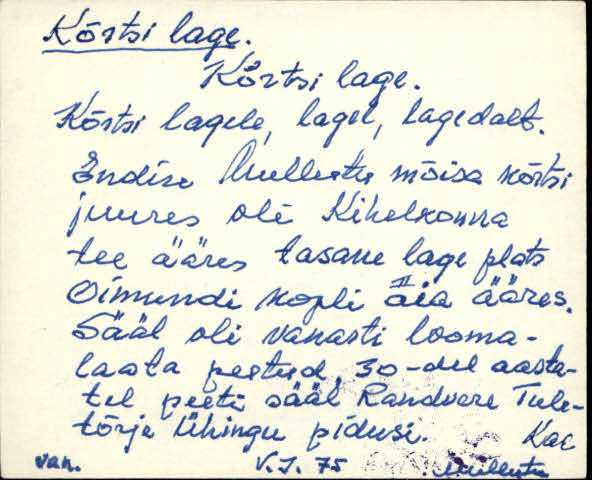 Kõrtsi lage.
Kõrtsi lage.
Kõrtsi lagele, lagel, lagedalt.
Endise Mullutu mõisa kõrtsi
juures oli Kihelkonna
tee ääres tasane lage plats
Oimundi kopli II aia ääres.
Sääl oli vanasti looma-
laata peetud 30-del aasta-
tel peeti sääl Randvere Tule-
tõrje Ühingu pidusi. Kae
van. V.J. 75 Mullutu